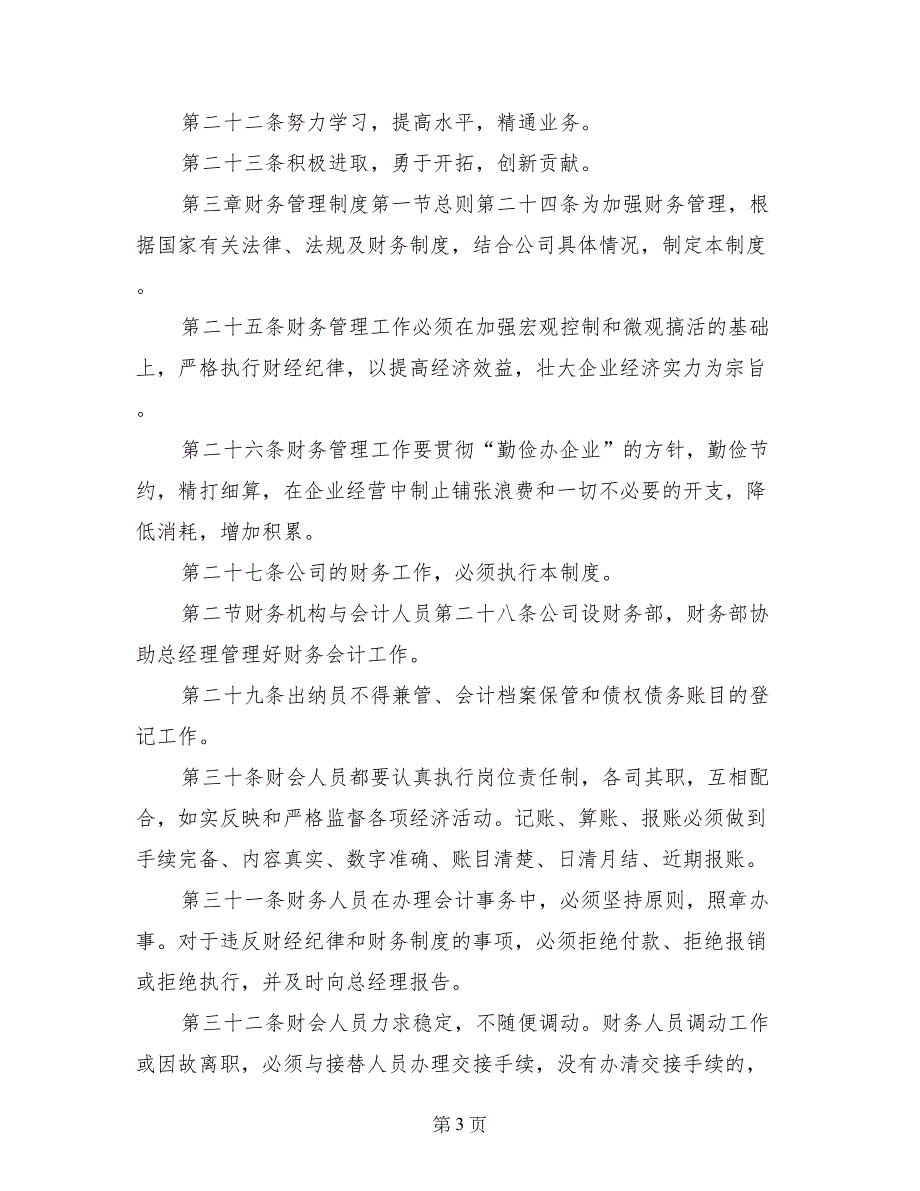 第二十二条努力学习，提高水平，精通业务。
第二十三条积极进取，勇于开拓，创新贡献。
第三章财务管理制度第一节总则第二十四条为加强财务管理，根
据国家有关法律、法规及财务制度，结合公司具体情况，制定本制度
。
第二十五条财务管理工作必须在加强宏观控制和微观搞活的基础
上，严格执行财经纪律，以提高经济效益，壮大企业经济实力为宗旨
。
第二十六条财务管理工作要贯彻“勤俭办企业”的方针，勤俭节
约，精打细算，在企业经营中制止铺张浪费和一切不必要的开支，降
低消耗，增加积累。
第二十七条公司的财务工作，必须执行本制度。
第二节财务机构与会计人员第二十八条公司设财务部，财务部协
助总经理管理好财务会计工作。
第二十九条出纳员不得兼管、会计档案保管和债权债务账目的登
记工作。
第三十条财会人员都要认真执行岗位责任制，各司其职，互相配
合，如实反映和严格监督各项经济活动。记账、算账、报账必须做到
手续完备、内容真实、数字准确、账目清楚、日清月结、近期报账。
第三十一条财务人员在办理会计事务中，必须坚持原则，照章办
事。对于违反财经纪律和财务制度的事项，必须拒绝付款、拒绝报销
或拒绝执行，并及时向总经理报告。
第三十二条财会人员力求稳定，不随便调动。财务人员调动工作
或因故离职，必须与接替人员办理交接手续，没有办清交接手续的，
第 3 页